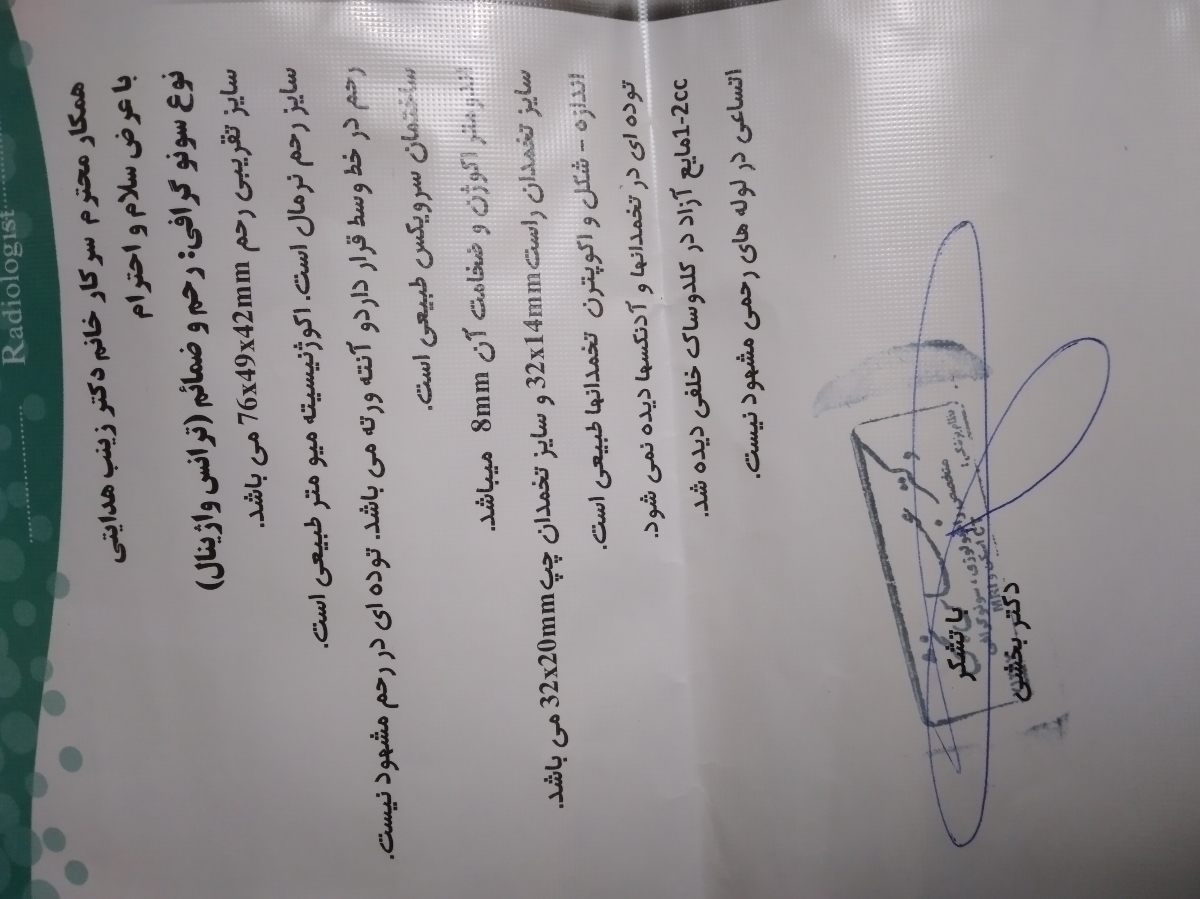 Radiologist
همکار محترم سرکار خانم دکتر زینب هدایتی
با عرض سلام و احترام
نوع سونوگرافی: رحم و ضمائم (ترانس واژینال)
سایز تقریبی رحم 76x49x42mm می باشد.
سایز رحم نرمال است. اکوژنیسیته میومتر طبیعی است.
رحم در خط وسط قرار دارد و آنته ورته می باشد. توده ای در رحم مشهود نیست.
ساختمان سرویکس طبیعی است.
اندومتر اکوژن و ضخامت آن 8mm میباشد.
سایز تخمدان راست 32x14mm و سایز تخمدان چپ 32x20mm می باشد.
اندازه - شکل و اکوپترن تخمدانها طبیعی است.
توده ای در تخمدانها و آدنکسها دیده نمی شود.
1-2cc مایع آزاد در کلدوساک خلفی دیده شد.
اتساعی در لوله های رحمی مشهود نیست.
با تشکر
دکتر بخشی
MRI